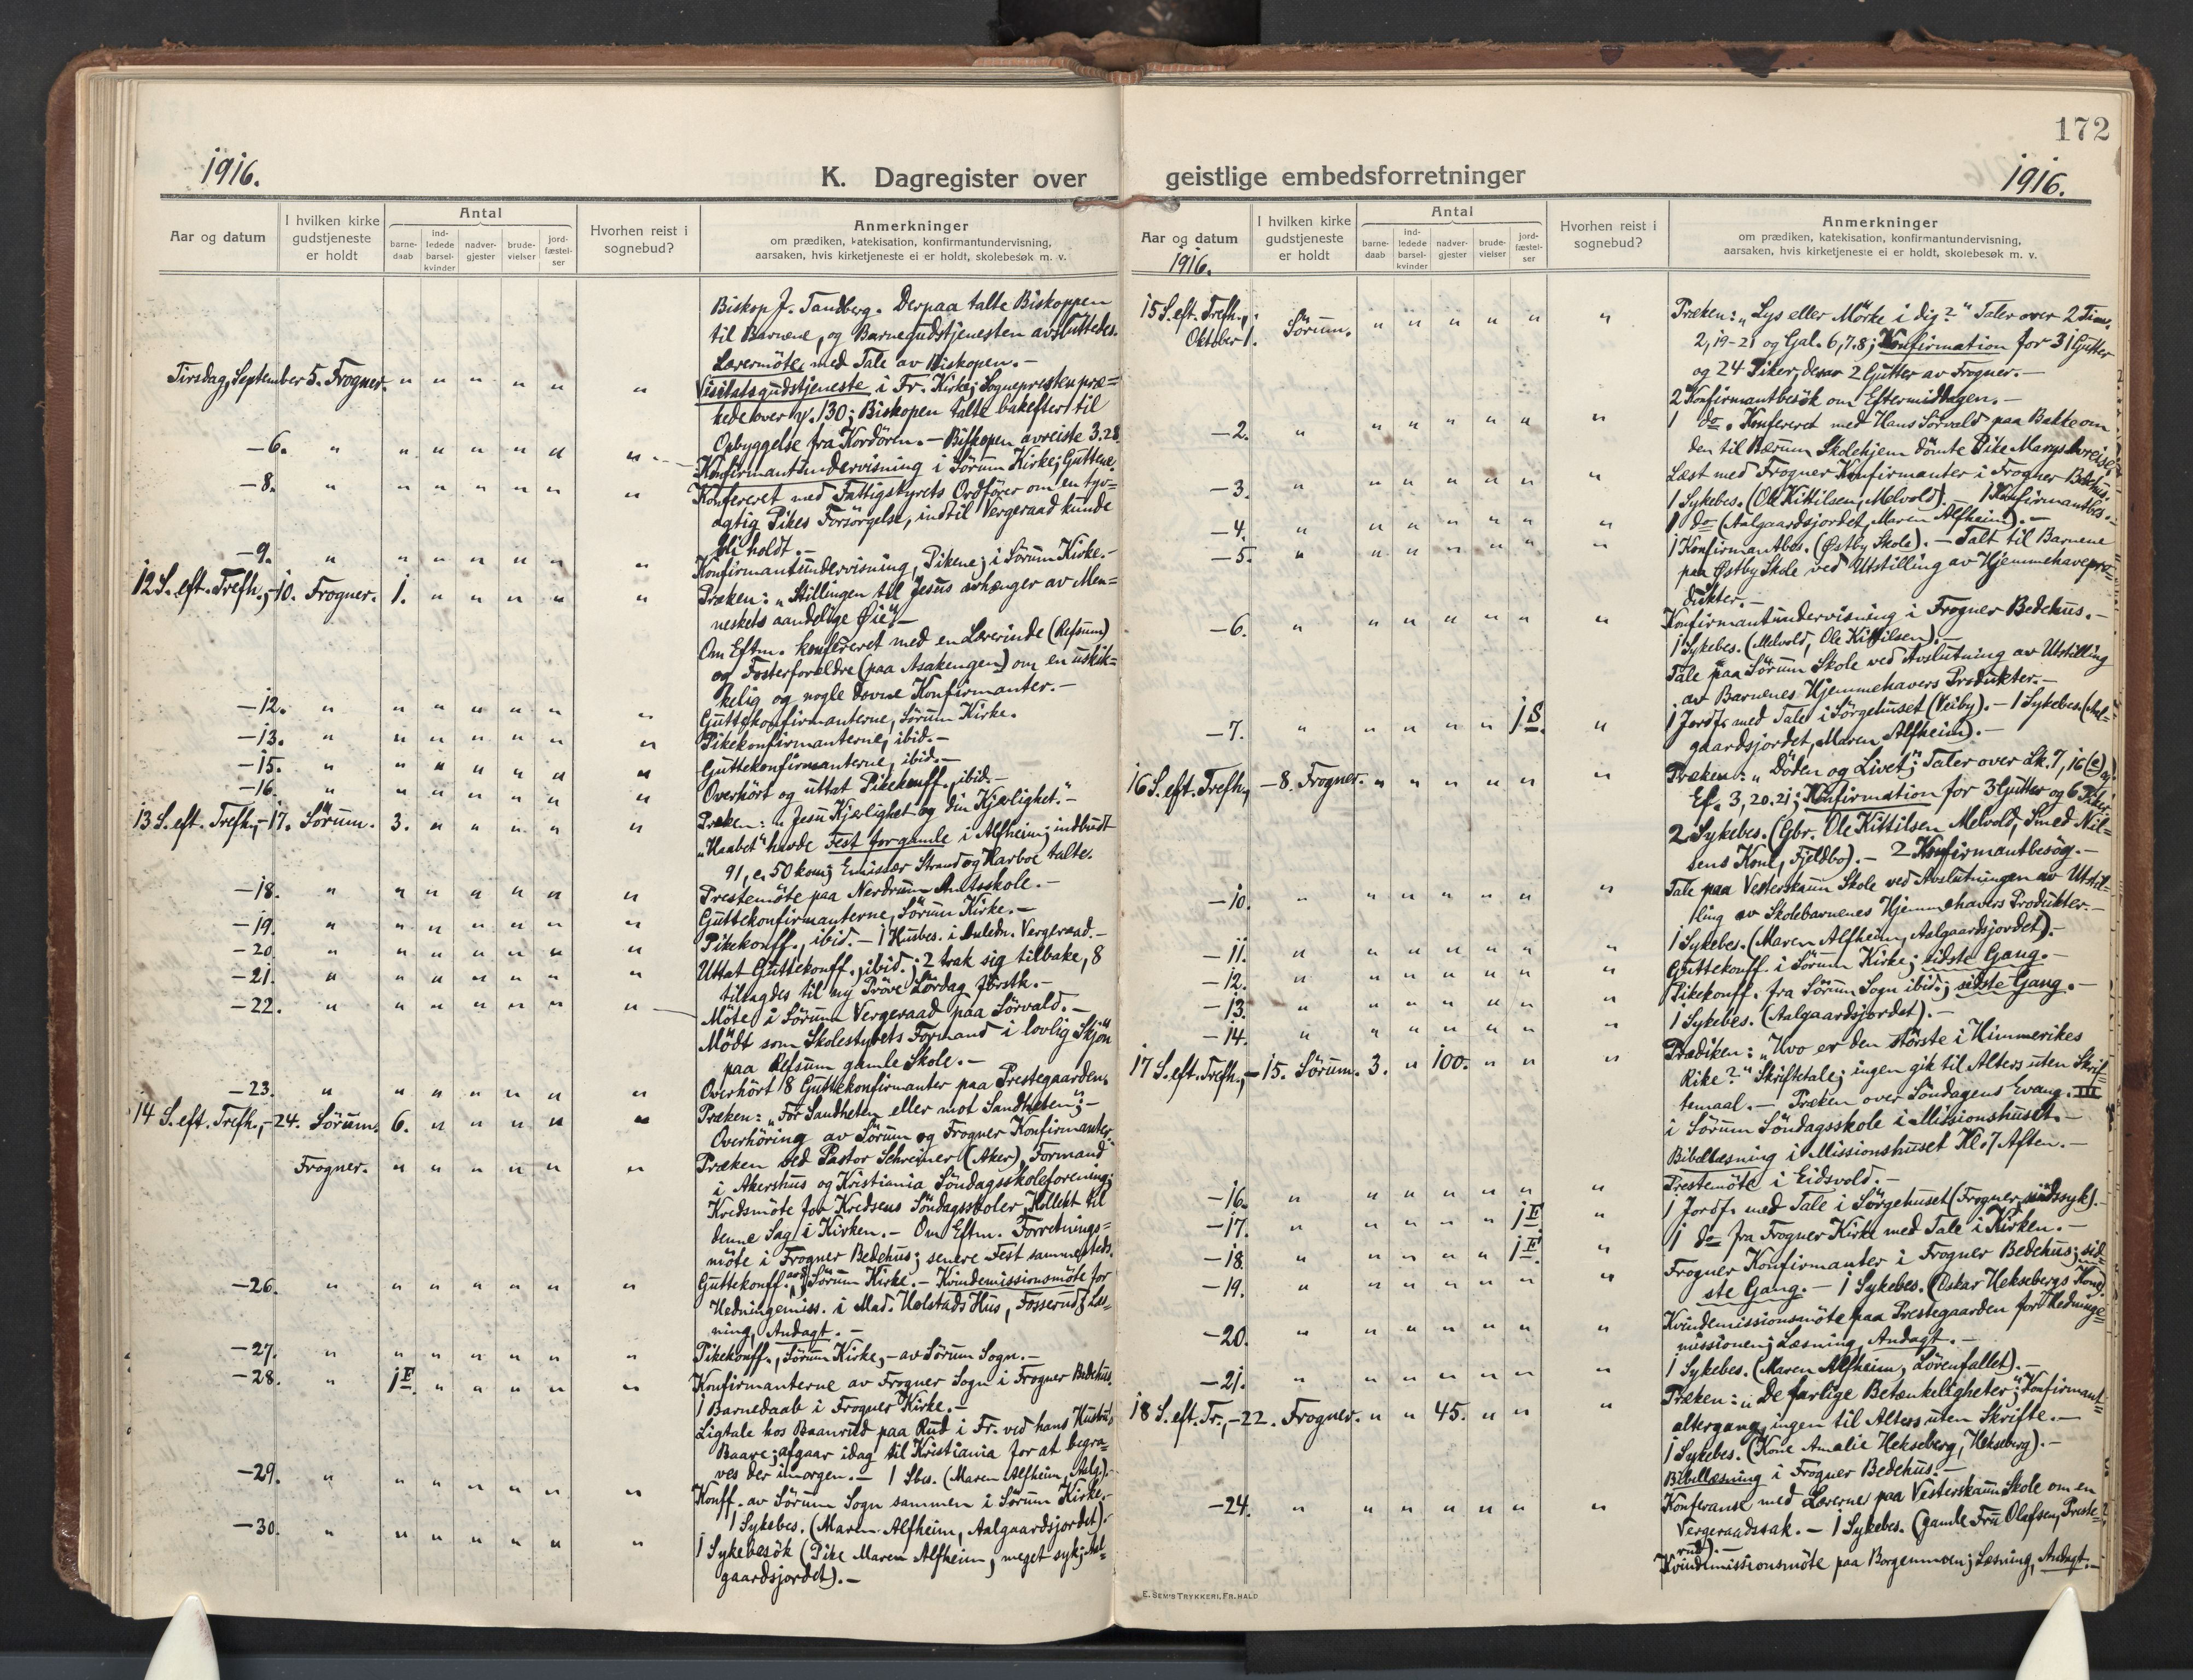 172
1916.
K. Dagregister over
geistlige embedsforretninger
1916.
Aar og datum
I hvilken kirke gudstjeneste er holdt
Antal
barne-daab
ind-ledede barsel-kvinder
nadver-gjester
brude-vielser
jord-fæstel-ser
Hvorhen reist i sognebud?
Anmerkninger
om prædiken, katekisation, konfirmantundervisning,
aarsaken, hvis kirketjeneste ei er holdt, skolebesøk m. v.
Biskop J. Tandberg. Derpaa talte Biskoppen
til Barnene, og Barnegudstjenesten avsluttedes.
Lærermöte med Tale av Biskopen.-
Tirsdag, September 5. Frogner. " " " " " " Visitatsgudstjeneste i Fr. Kirke; Sognepresten præ=
kede over 130; Biskopen talte bakefter til
Opbyggelse fra Kordören.- Biskopen avreiste 3.28.
-6. " " " " " " " Konfirmantundervisning i Sörum Kirke; Guttene.
-8. " " " " " " " Konfereret med Fattigstyrets Ordförer om en tyv=
agtig Pikes Forsörgelse, indtil Vergeraad kunde
bli holdt.-
-9. " " " " " " " Konfirmantundervisning, Pikene; i Sörum Kirke.-
12 S. eft. Trefh.,-10. Frogner. 1. " " " " " Præken: "Stillingen til Jesus avhænger av Men=
neskets aandelige Øie".-
Om Eftm. konfereret med en Lærerinde (Refsum)
og Fosterforældre (paa Asakengen) om en uskik=
kelig og nogle dovne Konfirmanter.-
-12. " " " " " " " Guttekonfirmanterne, Sörum Kirke.
-13. " " " " " " " Pikekonfirmanterne, ibid.-
-15. " " " " " " " Guttekonfirmanterne, ibid.-
-16. " " " " " " " Overhört og uttat Pikekonff., ibid.-
13 S. eft. Trefh.,-17. Sörum. 3. " " " " " Præken: "Jesu Kjærlighet og din Kjærlighet."-
"Haabet" havde Fest for gamle i Alfheim; indbudt
91, c. 50 kom; Emissær Strand og Harboe talte.
-18. " " " " " " " Prestemöte paa Nerdrum Amtsskole.-
-19. " " " " " " " Guttekonfirmanterne, Sörum Kirke.-
-20. " " " " " " " Pikekonff., ibid.- 1 Husbes. i Anledn. Vergeraad.-
-21. " " " " " " " Uttat Guttekonff., ibid.; 2 trak sig tilbake, 8
tilsagdes til ny Pröve Lördag förstk.-
-22. " " " " " " " Möte i Sörum Vergeraad paa Sörvald.-
Mödt som Skolestyrets Formand i lovlig Skjön
paa Refsum gamle Skole.-
-23. " " " " " " " Overhört 8 Guttekonfirmanter paa Prestegaarden.
14 S. eft. Trefh.,-24. Sörum. 6. " " " " " Præken: "For Sandheten eller mot Sandheten";-
Overhöring av Sörum og Frogner Konfirmanter.
Frogner. " " " " " " Præken ved Pastor Schreiner (Aker), Formand
i Akershus og Kristiania Söndagsskoleforening;
Kredsmöte for Kredsens Söndagsskoler, Kollekt til
denne Sag i Kirken.- Om Eftm. Forretnings=
möte i Frogner Bedehus; senere Fest sammesteds.
-26. " " " " " " " Guttekonff. Sörum Kirke.- Kvindemissionsmöte for
Hedningemiss. i Mad. Holstads Hus, Fosserud; Læs-
ning, Andagt.-
-27. " " " " " " " Pikekonff., Sörum Kirke,- av Sörum Sogn.-
-28. " 1 F. " " " " " Konfirmanterne av Frogner Sogn i Frogner Bedehus.
1 Barnedaab i Frogner Kirke.-
Ligtale hos Baanrud paa Rud i Fr. ved hans Hustrus
Baare; afgaar idag til Kristiania for at begra=
ves der imorgen.- 1 Sbes. (Maren Alfheim, Aalg.).
-29. " " " " " " " Konff. av Sörum Sogn sammen i Sörum Kirke.-
1 Sykebes. (Maren Alfheim, Aalgaardsjordet).
-30. " " " " " " " 1 Sykebesök (Pike Maren Alfheim; meget syk; Aal=
gaardsjordet).-
Aar og datum
1916.
I hvilken kirke gudstjeneste er holdt
Antal
barne-daab
ind-ledede barsel-kvinder
nadver-gjester
brude-vielser
jord-fæstel-ser
Hvorhen reist i sognebud?
Anmerkninger
om prædiken, katekisation, konfirmantundervisning,
aarsaken, hvis kirketjeneste ei er holdt, skolebesøk m. v.
15 S. eft. Trefh., Oktober 1. Sörum. " " " " " " Præken: "Lys eller Mörke i dig?" Taler over 2 Tim.
2, 19-21 og Gal. 6, 7.8; Konfirmation for 31 Gutter
og 24 Piker, derav 2 Gutter av Frogner.-
2 Konfirmantbesök om Eftermiddagen.-
-2. " " " " " " " 1 do. Konfereret med Hans Sörvald paa Bakke om
den til Bærum Skolehjem dömte Pike Marys Avreise.
-3. " " " " " " " Læst med Frogner Konfirmanter i Frogner Bedehus.
1 Sykebes. (Ole Kittilsen, Melvold).- 1 Konfirmantbes.-
-4. " " " " " " " 1 do (Aalgaardsjordet, Maren Alfheim).-
-5. " " " " " " " 1 Konfirmantbes. (Østby Skole).- Talt til Barnene
paa Østby Skole ved Utstilling av Hjemmehavepro=
dukter.-
-6. " " " " " " " Konfirmantundervisning i Frogner Bedehus.-
1 Sykebes. (Melvold, Ole Kittilsen).-
Tale paa Sörum Skole ved Avslutning av Utstilling
av Barnenes Hjemmehavers Produkter.-
-7. " " " " " 1 S. " 1 Jordf. med Tale i Sörgehuset (Veiby).- 1 Sykebes. (Aal-
gaardsjordet, Maren Alfheim).-
16 S. eft. Trefh., -8. Frogner. " " " " " " Præken: "Döden og Livet"; Taler over Lk. 7, 16 (e) og
Ef. 3, 20.21; Konfirmation for 3 Gutter og 6 Piker.
2 Sykebes. (Gbr. Ole Kittilsen Melvold, Smed Nil=
sens Kone, Fjeldbo).- 2 Konfirmantbesög.-
-10. " " " " " " " Tale paa Vesterskaun Skole ved Avslutningen av Utstil-
ling av Skolebarnenes Hjemmehavers Produkter.-
-11. " " " " " " " 1 Sykebes. (Maren Alfheim, Aalgaardsjordet).-
-12. " " " " " " " Guttekonff. i Sörum Kirke; sidste Gang.-
-13. " " " " " " " Pikekonff. fra Sörum Sogn ibid.; sidste Gang.-
-14. " " " " " " " 1 Sykebes. (Aalgaardsjordet).-
17 S. eft. Trefh., -15. Sörum. 3. " 100. " " " Prædiken: "Hvo er den störste i Himmerikes
Rike?" Skriftetale; ingen gik til Alters uten Skrif=
temaal.- Præken over Söndagens Evang. III
i Sörum Söndagsskole i Missionshuset.-
Bibellæsning i Missionshuset Kl. 7 Aften.-
-16. " " " " " " " Prestemöte i Eidsvold.-
-17. " " " " " 1 F. " 1 Jordf. med Tale i Sörgehuset (Frogner, sidssyk).-
-18. " " " " " 1 F. " 1 do fra Frogner Kirke med Tale i Kirken.-
-19. " " " " " " " Frogner Konfirmanter i Frogner Bedehus; sid=
ste Gang.- 1 Sykebes. (Oskar Heksebergs Kone).
-20. " " " " " " " Kvindemissionsmöte paa Prestegaarden for Hedninge=
missionen; Læsning, Andagt.-
-21. " " " " " " " 1 Sykebes. (Maren Alfheim, Lörenfallet).-
18 S. eft. Tr., -22. Frogner. " " 45. " " " Præken: "De farlige Betænkeligheter"; Konfirmant=
altergang, ingen til Alters uten Skrifte.-
1 Sykebes. (Kone Amalie Hekseberg, Hekseberg).-
Bibellæsning i Frogner Bedehus.-
-24. " " " " " " " Konferanse med Lærerne paa Vesterskaun Skole om en
Vergeraadssak.- 1 Sykebes. (gamle Fru Olafsen, Preste=
rud).-
Kvindemissionsmöte paa Borgenmoen; Læsning, Andagt.-
E. SEM'S TRYKKERI, FR.HALD